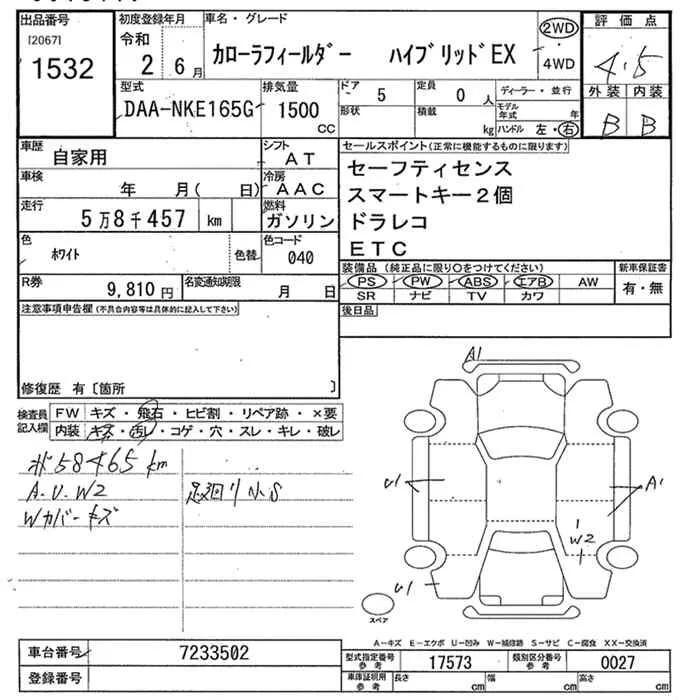 出品番号 初度登録年月 車名・グレード 2WD 評価点
[2067] 令和
1532 2 6月 カローラフィールダー ハイブリッドEX 4WD 4.5
型式 排気量 ドア 5 定員 0人 ディーラー・並行 外装 内装
DAA-NKE165G 1500cc 形状 積載 kg モデル年式 年 B B
ハンドル 左・右
車歴 自家用 シフト AT セールスポイント(正常に機能するものに限ります)
車検 年 月( 日) 冷房 AAC セーフティセンス
走行 5万8千457 km 燃料 ガソリン スマートキー2個
ドラレコ
色 ホワイト 色替 色コード 040 ETC
R券 9,810円 名変通知期限 月 日 装備品(純正品に限り○をつけてください) 新車保証書
PS PW ABS エアB AW 有・無
SR ナビ TV カワ
注意事項申告欄(不具合内容等は具体的に記入して下さい) 後日品
修復歴 有〔箇所 〕
検査員記入欄 FW キズ・飛石・ヒビ割・リペア跡・×要
内装 キズ・汚レ・コゲ・穴・スレ・キレ・破レ
58465 km
A.U.W2 足廻り小S
Wカバーキズ
A1
U1 A1
W2
U1
スペア
A-キズ E-エクボ U-凹み W-補修跡 S-サビ C-腐食 XX-交換済
車台番号 7233502 型式指定番号参考 17573 類別区分番号参考 0027
登録番号 車庫証明用参考 長さ cm 幅 cm 高さ cm